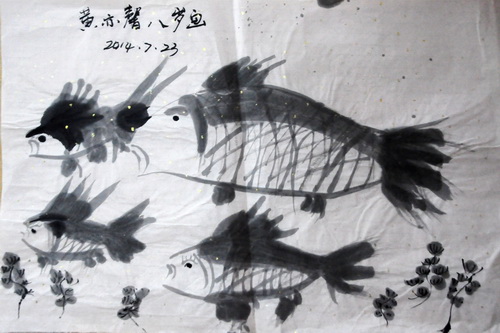 黄亦馨八岁画
2014.7.23